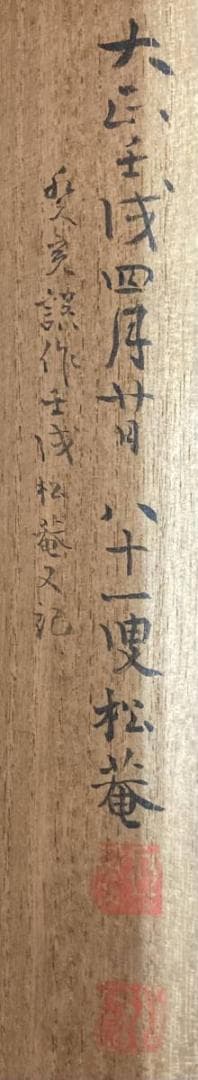 大正壬戌四月廿日 八十一叟松菴
癸亥誤作壬戌松菴又記